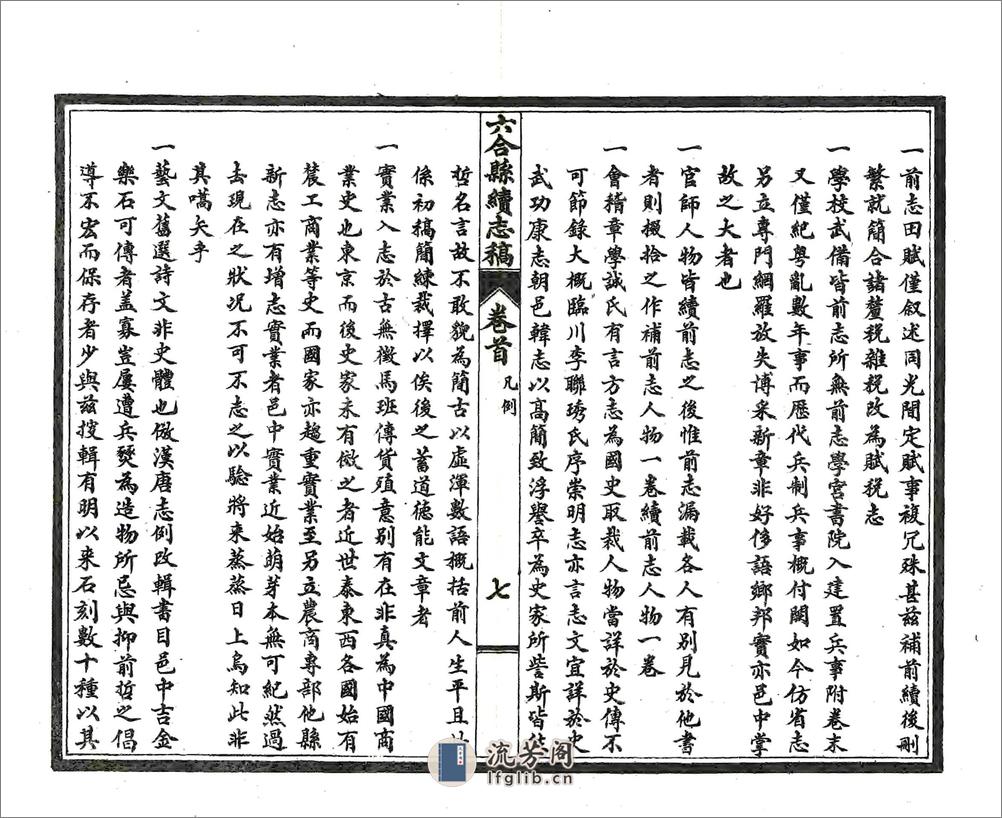 一前志田賦僅叙述同光間定賦事複冗殊甚兹補前續後刪
繁就簡合諸釐税雜税改為賦税志
一學校武備皆前志所無前志學宮書院入建置兵事附卷末
又僅紀粤亂數年事而歷代兵制兵事概付闕如今仿省志
另立專門網羅放失博采新章非好侈語鄉邦實亦邑中掌
故之大者也
一官師人物皆續前志之後惟前志漏載各人有别見於他書
者則掇拾之作補前志人物一卷續前志人物一卷
一會稽章學誠氏有言方志為國史取裁人物當詳於史傳不
可節錄大概臨川李聯琇氏序崇明志亦言志文宜詳於史
武功康志朝邑韓志以高簡致浮譽卒為史家所訾斯皆
六合縣續志稿
卷首
凡例
七
哲名言故不敢貌為簡古以虛渾數語概括前人生平且
係初稿簡練裁擇以俟後之蓄道德能文章者
一實業入志於古無徵馬班傳貨殖意别有在非真為中國商
業史也東京而後史家未有倣之者近世泰東西各國始有
農工商業等史而國家亦趨重實業至另立農商專部他縣
新志亦有增志實業者邑中實業近始萌芽本無可紀然過
去現在之狀况不可不志之以驗將来蒸蒸日上烏知此非
其嚆矢乎
一藝文舊選詩文非史體也倣漢唐志例改輯書目邑中吉金
樂石可傳者盖寡豈屢遭兵燹為造物所忌與抑前哲之倡
導不宏而保存者少與兹搜輯有明以来石刻數十種以其
流芳阁
lfglib.cn